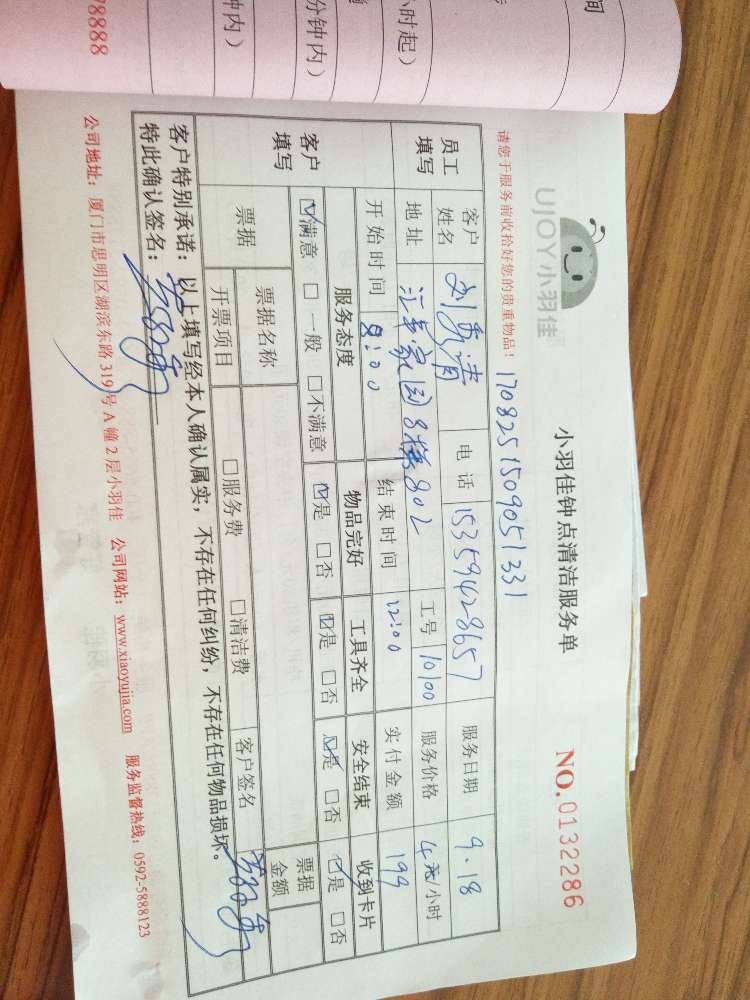 间
小时起)
分钟内)
钟内)
78888
UJOY小羽佳
小羽佳钟点清洁服务单
NO.0132286
请您于服务前收拾好您的贵重物品!
170825150905 1331
员工填写
客户姓名
电话 15359428657
服务日期 9.18
地址 汇华家园8楼802
工号 10100
服务价格 4元/小时
开始时间 8:00
结束时间 12:00
实付金额 199
客户填写
服务态度 物品完好 工具齐全 安全结束 收到卡片
☑满意 □一般 □不满意 ☑是 □否 ☑是 □否 ☑是 □否 ☑是 □否
票据
票据名称
票据金额
开票项目 □服务费 □清洁费 客户签名
客户特别承诺:以上填写经本人确认属实,不存在任何纠纷,不存在任何物品损坏。
特此确认签名:
公司地址:厦门市思明区湖滨东路319号A幢2层小羽佳 公司网站:www.xiaoyujia.com 服务监督热线:0592-5888123